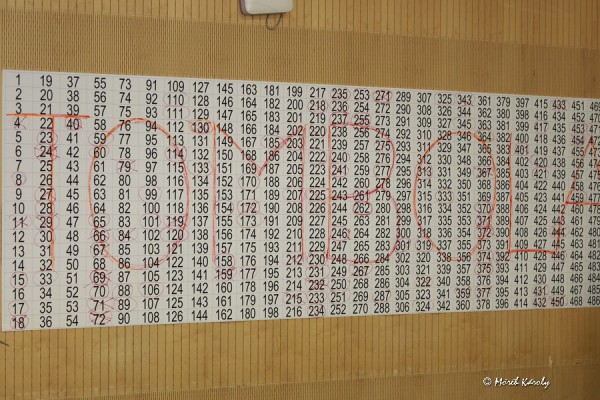 TOMBOLA
1 19 37 55 73 91 109 127 145 163 181 199 217 235 253 271 289 307 325 343 361 379 397 415 433 451 469
2 20 38 56 74 92 110 128 146 164 182 200 218 236 254 272 290 308 326 344 362 380 398 416 434 452 470
3 21 39 57 75 93 111 129 147 165 183 201 219 237 255 273 291 309 327 345 363 381 399 417 435 453 471
4 22 40 58 76 94 112 130 148 166 184 202 220 238 256 274 292 310 328 346 364 382 400 418 436 454 472
5 23 41 59 77 95 113 131 149 167 185 203 221 239 257 275 293 311 329 347 365 383 401 419 437 455 473
6 24 42 60 78 96 114 132 150 168 186 204 222 240 258 276 294 312 330 348 366 384 402 420 438 456 474
7 25 43 61 79 97 115 133 151 169 187 205 223 241 259 277 295 313 331 349 367 385 403 421 439 457 475
8 26 44 62 80 98 116 134 152 170 188 206 224 242 260 278 296 314 332 350 368 386 404 422 440 458 476
9 27 45 63 81 99 117 135 153 171 189 207 225 243 261 279 297 315 333 351 369 387 405 423 441 459 477
10 28 46 64 82 100 118 136 154 172 190 208 226 244 262 280 298 316 334 352 370 388 406 424 442 460 478
11 29 47 65 83 101 119 137 155 173 191 209 227 245 263 281 299 317 335 353 371 389 407 425 443 461 479
12 30 48 66 84 102 120 138 156 174 192 210 228 246 264 282 300 318 336 354 372 390 408 426 444 462 480
13 31 49 67 85 103 121 139 157 175 193 211 229 247 265 283 301 319 337 355 373 391 409 427 445 463 481
14 32 50 68 86 104 122 140 158 176 194 212 230 248 266 284 302 320 338 356 374 392 410 428 446 464 482
15 33 51 69 87 105 123 141 159 177 195 213 231 249 267 285 303 321 339 357 375 393 411 429 447 465 483
16 34 52 70 88 106 124 142 160 178 196 214 232 250 268 286 304 322 340 358 376 394 412 430 448 466 484
17 35 53 71 89 107 125 143 161 179 197 215 233 251 269 287 305 323 341 359 377 395 413 431 449 467 485
18 36 54 72 90 108 126 144 162 180 198 216 234 252 270 288 306 324 342 360 378 396 414 432 450 468 486
© Mórék Károly